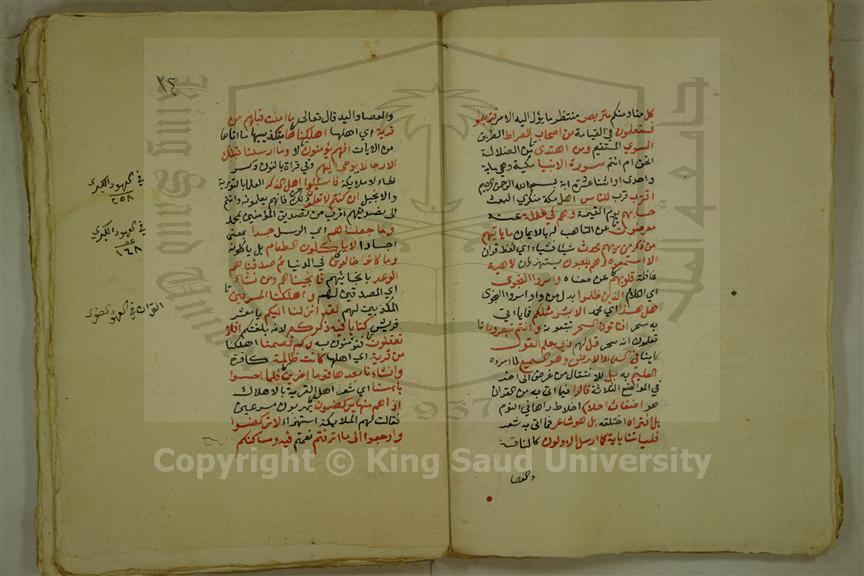 كل منا ومنكم متربص منتظر ما يؤل اليه الامر فتربصوا
فستعلمون في القيامة من اصحاب الصراط الطريق
السوي المستقيم ومن اهتدى من الضلالة
انحن ام انتم سورة الانبيا مكية وهي ماية
واحدى او اثنتا عشرة اية بسم الله الرحمن الرحيم
اقترب قرب للناس اهل مكة منكري البعث
حسابهم يوم القيمة وهم في غفلة عنه
معرضون عن التاهب لها بالايمان ما ياتيهم
من ذكر من ربهم محدث شيا فشيا اي لفظ قران
الا استمعوه وهم يلعبون يستهزون لاهية
غافلة قلوبهم عن معناه واسروا النجوى
اي الكلام الذين ظلموا بدل من واو اسروا النجوى
هل هذا اي محمد الا بشر مثلكم فما ياتي
به سحر افتاتون السحر تتبعونه وانتم تبصرون
تعلمون انه سحر قل لهم ربي يعلم القول
كاينا في السماء والارض وهو السميع لما اسروه
العليم به بل للانتقال من غرض الى اخر
في المواضع الثلاثة قالوا فيما اتى به من القران
هو اضغاث احلام اخلاط راها في النوم
بل افتراه اختلقه بل هو شاعر فما اتى به شعر
فلياتنا باية كما ارسل الاولون كالناقة
والعصا
٣٤
والعصا واليد قال تعالى ما امنت قبلهم من
قرية اي اهلها اهلكناها بتكذيبها ما اتاها
من الايات افهم يؤمنون لا وما ارسلنا قبلك
الا رجالا يوحى اليهم وفي قراة بالنون وكسر
الحاء لا ملايكة فاسئلوا اهل الذكر العلما بالتورية
والانجيل ان كنتم لا تعلمون ذلك فانهم يعلمونه وانتم
الى تصديقهم اقرب من تصديق المؤمنين بمحمد
وما جعلناهم اي الرسل جسدا بمعنى
اجسادا لا ياكلون الطعام بل ياكلونه
وما كانوا خالدين في الدنيا ثم صدقناهم
الوعد بانجائهم فانجيناهم ومن نشاء
اي المصدقين لهم واهلكنا المسرفين
المكذبين لهم لقد انزلنا اليكم يا معشر
قريش كتابا فيه ذكركم لانه بلغتكم افلا
تعقلون فتؤمنون به وكم قصمنا اهلكنا
من قرية اي اهلها كانت ظالمة كافرة
وانشانا بعدها قوما اخرين فلما احسوا
باسنا اي شعر اهل القرية بالاهلاك
اذا هم منها يركضون يهربون مسرعين
فقالت لهم الملايكة استهزاء لا تركضوا
وارجعوا الى ما اترفتم نعمتم فيه ومساكنكم
في العهود الكبرى
٢٥٨
في العهود الكبرى
١٦٨
جامعة الملك سعود
King Saud University
1957
Copyright © King Saud University